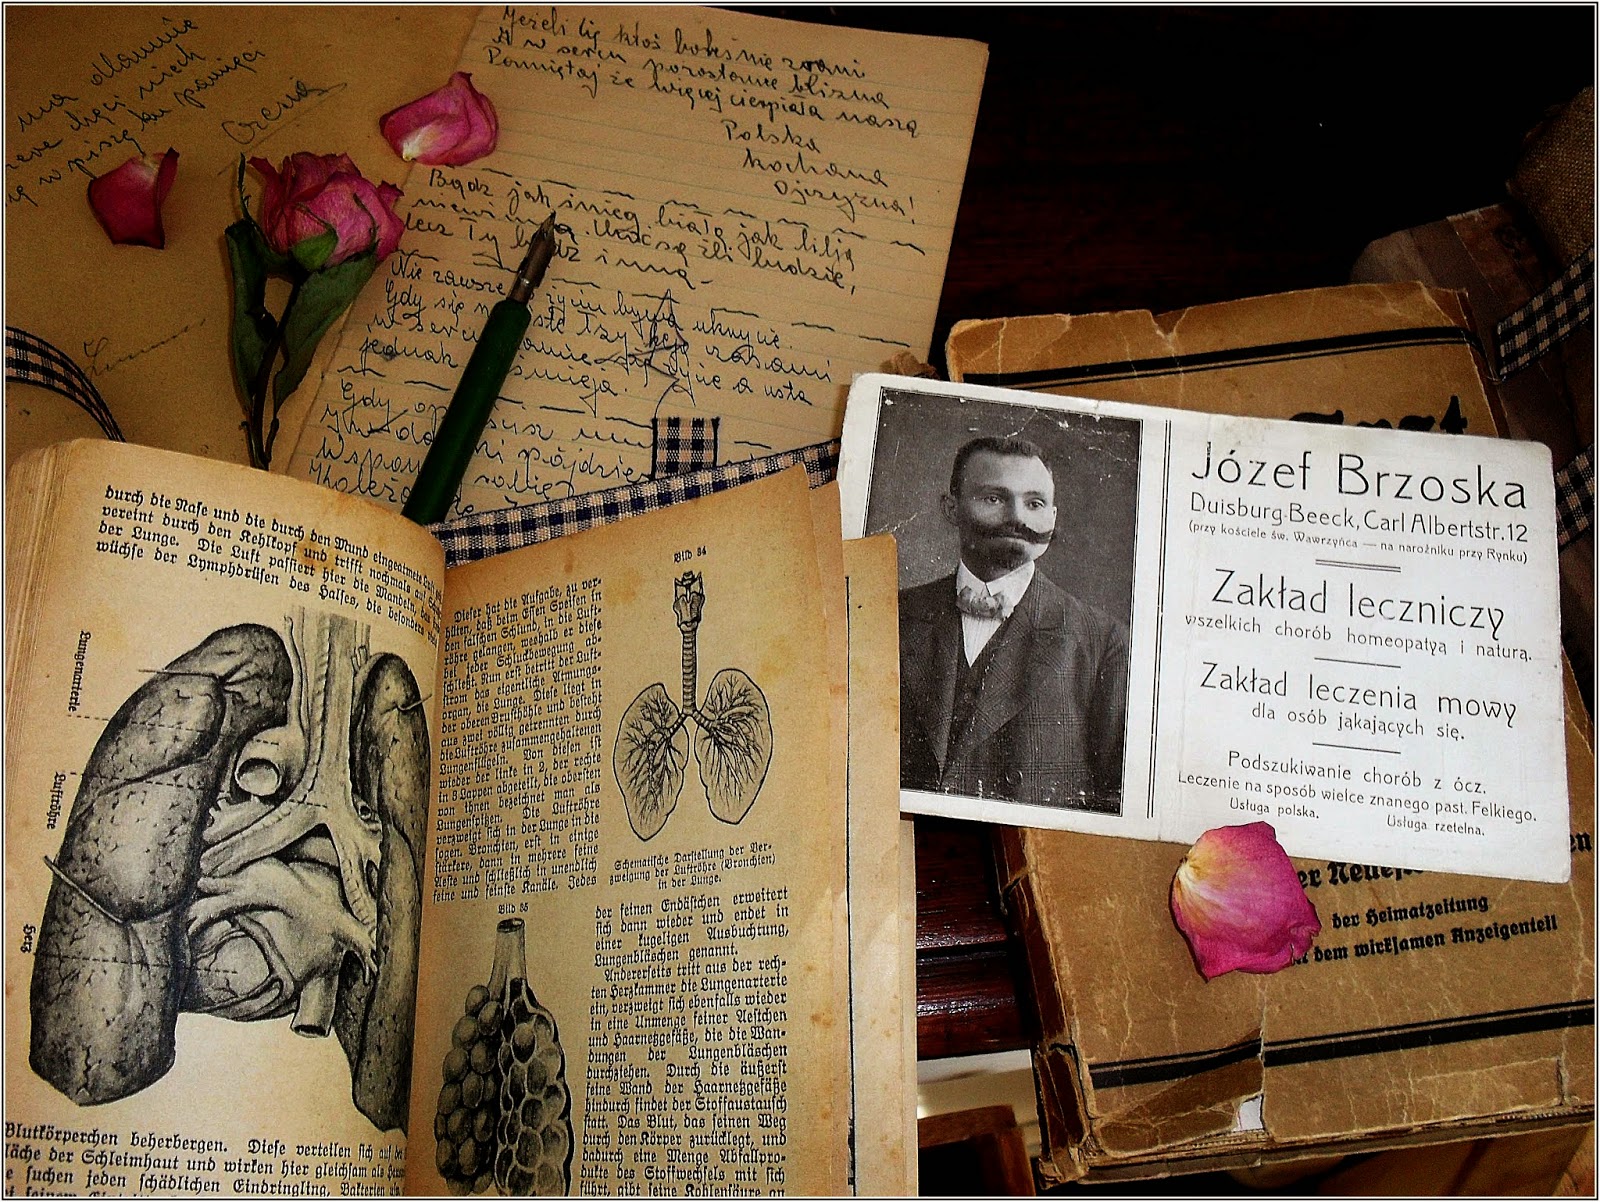 na dłonie
chęci niech
w piszę ku pamięci
Jeżeli cię ktoś boleśnie zrani
A w sercu pozostanie blizna
Pamiętaj że więcej cierpiała nasza
Polska
kochana
Ojczyzna!
Bądź jak śnieg biała jak lilja
niewinna.
lecz Ty bądź inną
Nie zawsze życiu bywa
Gdy się
w sercu
jednak
Gdy
pójdzie
durch die Nase und die durch den Mund eingeatmete
vereint durch den Kehlkopf und trifft nochmals auf
der Lunge. Die Luft passiert hier die Mandeln, das
wüchse der Lymphdrüsen des Halses, die besonders
Lungenarterie
Luftröhre
Herz
Blutkörperchen beherbergen. Diese verteilen sich auf
der Schleimhaut und wirken hier gleichsam als
suchen jeden schädlichen Eindringling, Bakterien
Bild 34
Dieser hat die Aufgabe, zu ver-
hüten, daß beim Essen Speisen in
den falschen Schlund, in die Luft-
röhre gelangen, weshalb er diese
bei jeder Schluckbewegung ab-
schließt. Nun erst betritt der Luft-
strom das eigentliche Atmungs-
organ, die Lunge. Diese liegt in
der oberen Brusthöhle und besteht
aus zwei völlig getrennten durch
die Luftröhre zusammengehaltenen
Lungenflügeln. Von diesen ist
wieder der linke in 2, der rechte
in 3 Lappen abgeteilt, die obersten
von ihnen bezeichnet man als
Lungenspitzen. Die Luftröhre
verzweigt sich in der Lunge in die
sogen. Bronchien, erst in einige
stärkere, dann in mehrere feine
Aeste und schließlich in unendlich
feine und feinste Kanäle. Jedes
Schematische Darstellung der Ver-
zweigung der Luftröhre (Bronchien)
in der Lunge.
Bild 35
der feinen Endästchen erweitert
sich dann wieder und endet in
einer kugeligen Ausbuchtung,
Lungenbläschen genannt.
Andererseits tritt aus der rech-
ten Herzkammer die Lungenarterie
ein, verzweigt sich ebenfalls wieder
in eine Unmenge feiner Aestchen
und Haarnetzgefäße, die die Wan-
dungen der Lungenbläschen
durchziehen. Durch die äußerst
feine Wand der Haarnetzgefäße
hindurch findet der Stoffaustausch
statt. Das Blut, das seinen Weg
durch den Körper zurücklegt, und
dadurch eine Menge Abfallpro-
dukte des Stoffwechsels mit sich
führt, gibt seine Kohlensäure an
Józef Brzoska
Duisburg-Beeck, Carl Albertstr. 12
(przy kościele św. Wawrzyńca — na narożniku przy Rynku)
Zakład leczniczy
wszelkich chorób homeopatyą i naturą.
Zakład leczenia mowy
dla osób jąkających się.
Podszukiwanie chorób z ócz.
Leczenie na sposób wielce znanego past. Felkiego.
Usługa polska. Usługa rzetelna.
der Heimatzeitung
dem wirksamen Anzeigenteil